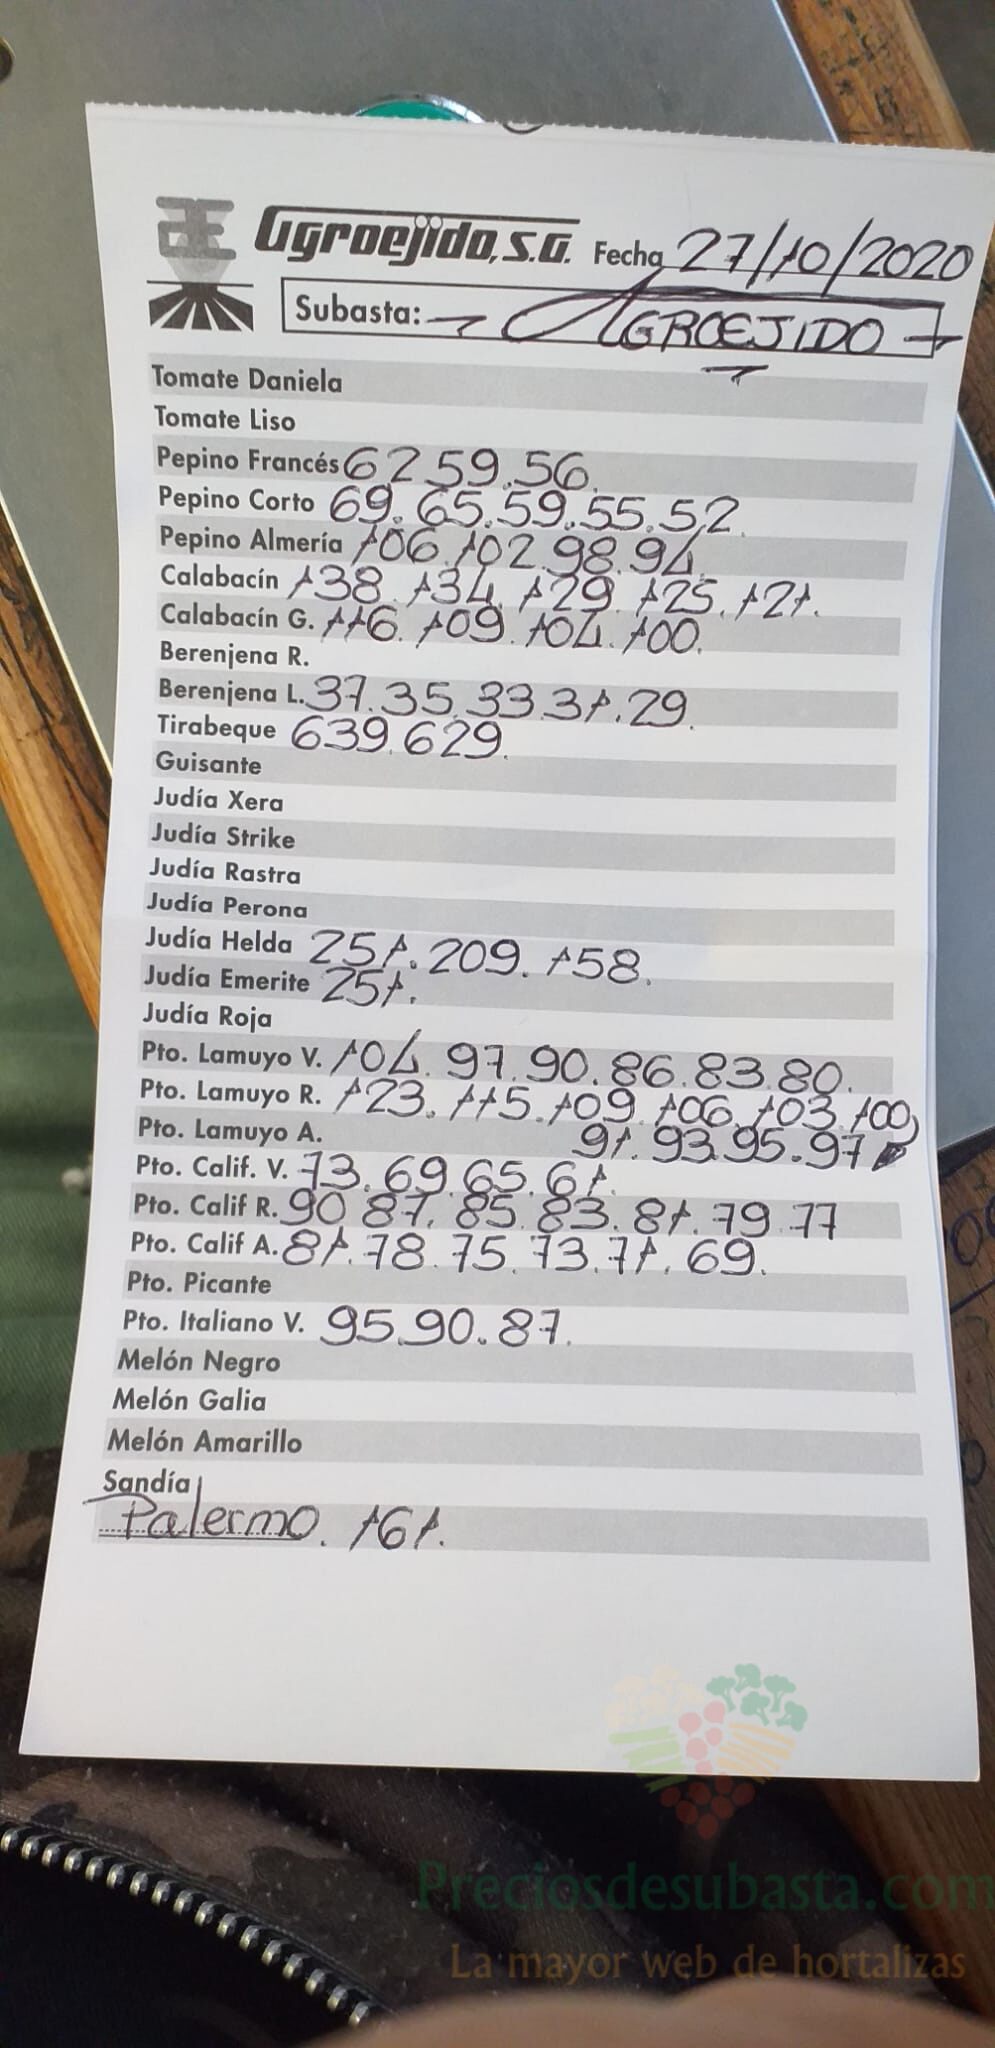 Agroejido, S.A. Fecha 27/10/2020
Subasta: AGROEJIDO
Tomate Daniela
Tomate Liso
Pepino Francés 62.59.56.
Pepino Corto 69.65.59.55.52.
Pepino Almería 106.102.98.94.
Calabacín 138.134.129.125.121.
Calabacín G. 116.109.104.100.
Berenjena R.
Berenjena L. 37.35.33.31.29.
Tirabeque 639.629.
Guisante
Judía Xera
Judía Strike
Judía Rastra
Judía Perona
Judía Helda 251.209.158.
Judía Emerite 251.
Judía Roja
Pto. Lamuyo V. 104.97.90.86.83.80.
Pto. Lamuyo R. 123.115.109.106.103.100
Pto. Lamuyo A. 91.93.95.97
Pto. Calif. V. 73.69.65.61.
Pto. Calif R. 90 87.85.83.81.79.77
Pto. Calif A. 81.78.75.73.71.69.
Pto. Picante
Pto. Italiano V. 95.90.87.
Melón Negro
Melón Galia
Melón Amarillo
Sandía
Palermo. 161.
Preciosdesubasta.com
La mayor web de hortalizas